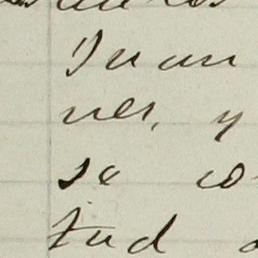 Juan
nes, y
se co
tud